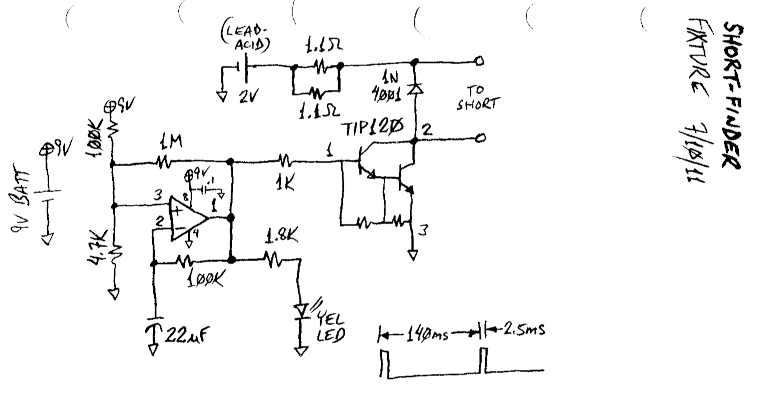 (LEAD-
ACID)
2V
1.1Ω
1.1Ω
1N
4001
TO
SHORT
TIP120
1
2
3
9V
100K
9V
9V BATT
1M
9V
.1
8
3
2
1
4
4.7K
1K
100K
1.8K
22uF
YEL
LED
140ms
2.5ms
SHORT-FINDER
FIXTURE 7/10/11